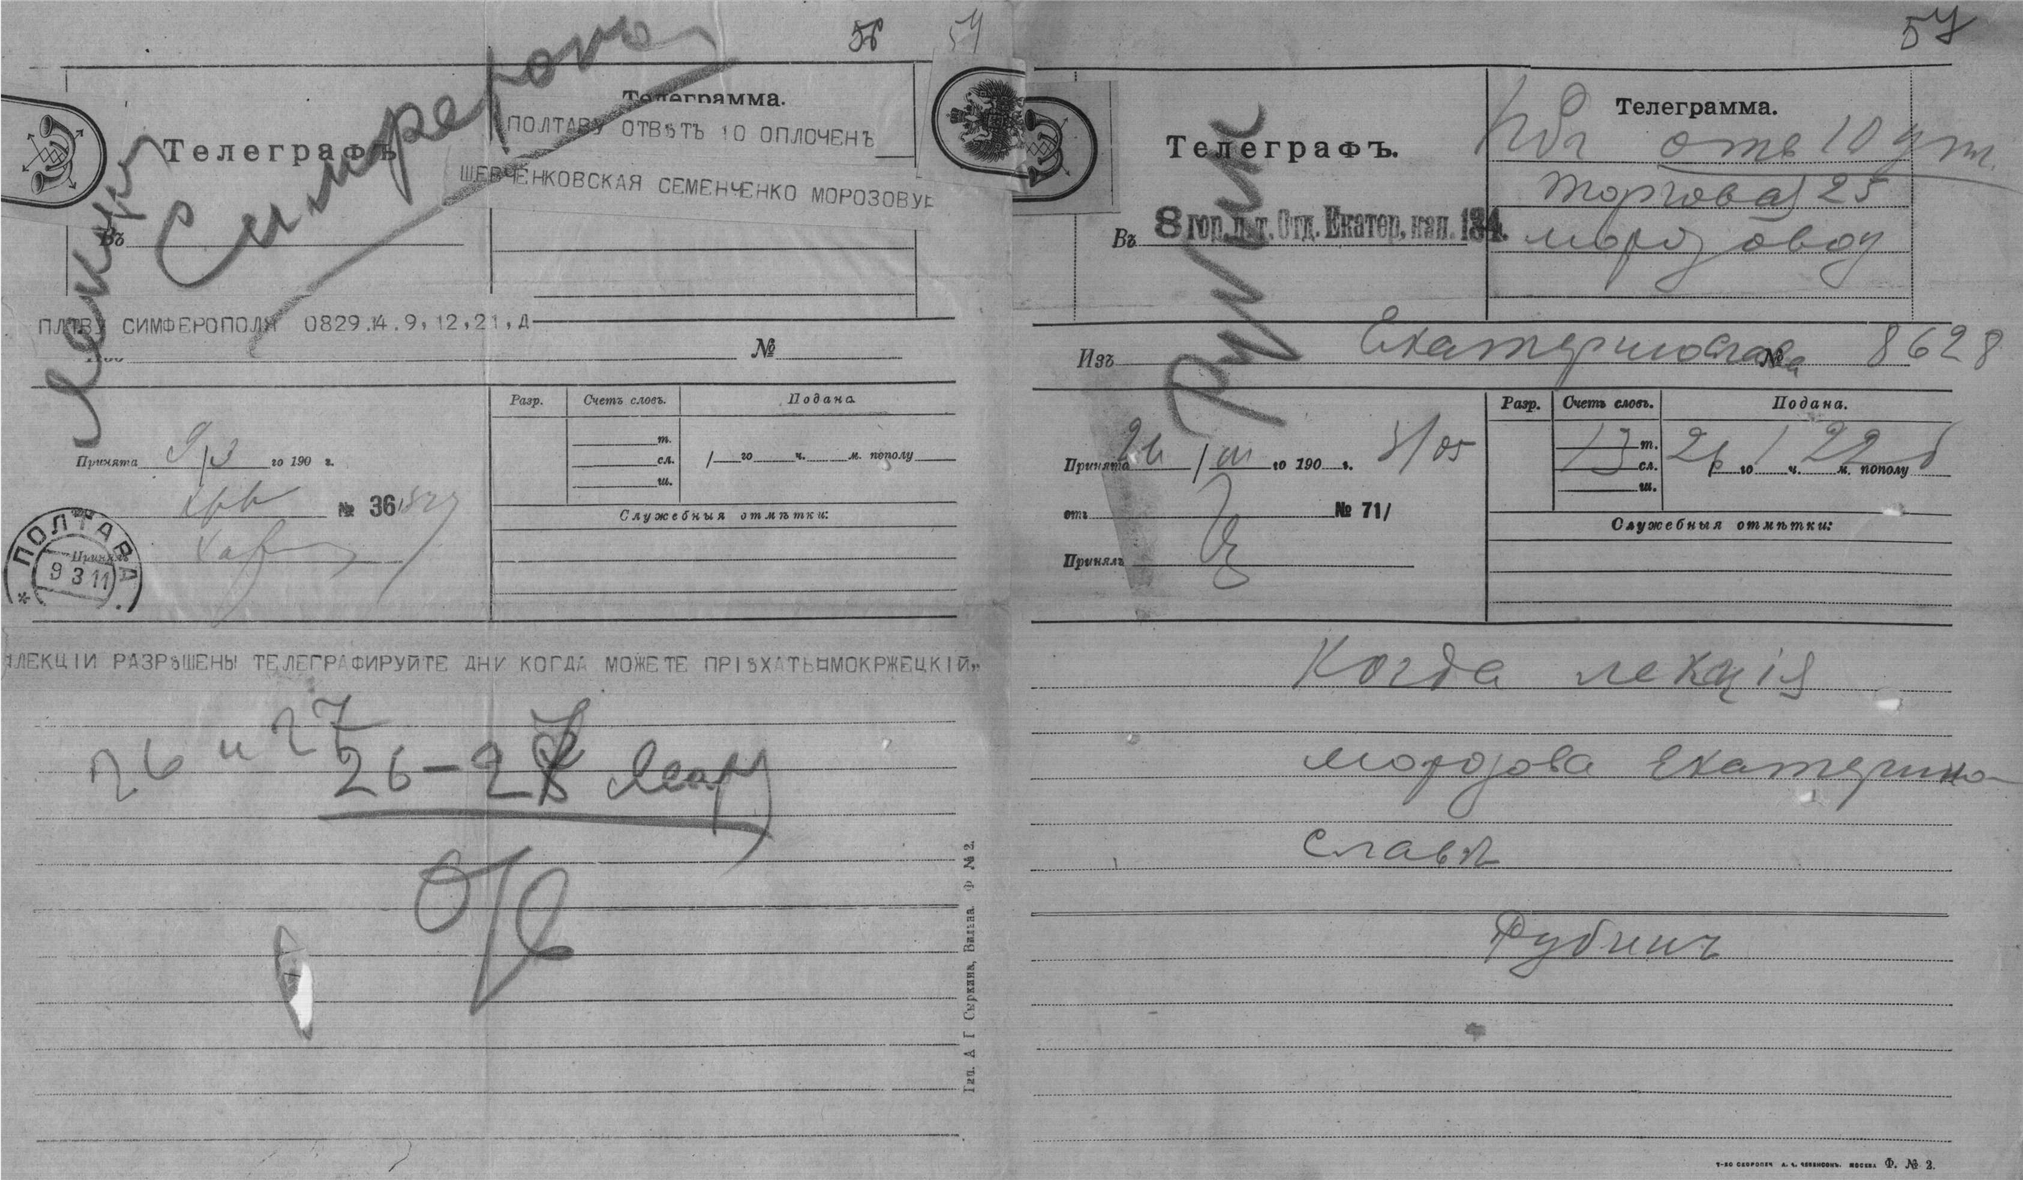 56
54
Симферополь
Лекции
Телеграфъ
Телеграмма.
ПОЛТАВУ ОТВѢТЪ 10 ОПЛОЧЕНЪ
ШЕВЧЕНКОВСКАЯ СЕМЕНЧЕНКО МОРОЗОВУ
Въ
ПЛТВУ СИМФЕРОПОЛЯ 0829.14.9,12,21,Д
№
Разр.
Счетъ словъ.
Подана
т.
сл.
ш.
/ го ч. м. пополу
Принята 9/3 го 190 г.
№ 36
Служебныя отмѣтки:
Принялъ
ПОЛТАВА
9 3 11
ЛЕКЦІИ РАЗРѢШЕНЫ ТЕЛЕГРАФИРУЙТЕ ДНИ КОГДА МОЖЕТЕ ПРІѢХАТЬ МОКРЖЕЦКІЙ
26 и 27
26-27
Тип. А Г Сыркина, Вильна. Ф № 2.
57
Телеграфъ.
Телеграмма.
отв 10
Торговая 25
Морозову
Въ 8 гор. п. т. Отд. Екатер. кан. 134.
Изъ Екатеринослава № 8628
Разр.
Счетъ словъ.
Подана.
13 т.
сл.
ш.
26 го 1 ч. 22 м. пополу
Принята 26/III го 190 г.
отъ № 71/
Принялъ
Служебныя отмѣтки:
Когда лекція
Морозова Екатерино
славѣ
Рубинъ
Ф. № 2.